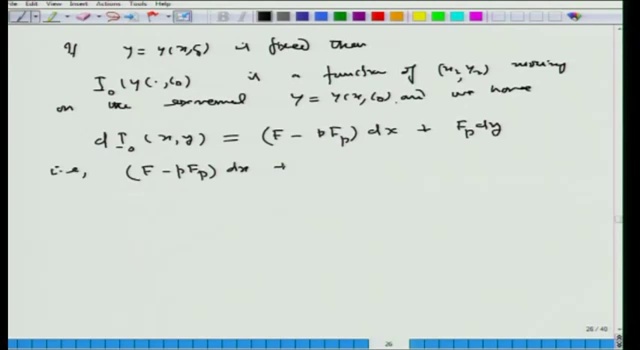 File Edit View Insert Actions Tools Help
If y = y(x, c₀) is fixed then
I₀(y(·, c₀) is a function of (x₂, y₂) moving
on the extremal y = y(x, c₀) and we have
d I₀(x, y) = (F − pFₚ) dx + Fₚ dy
i.e, (F − pFₚ) dx +
26 / 40
26